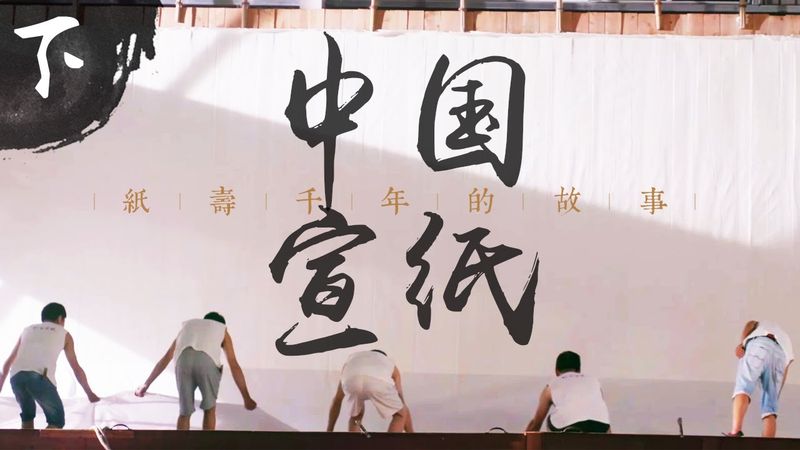 下
中国
紙壽千年的故事
宣纸